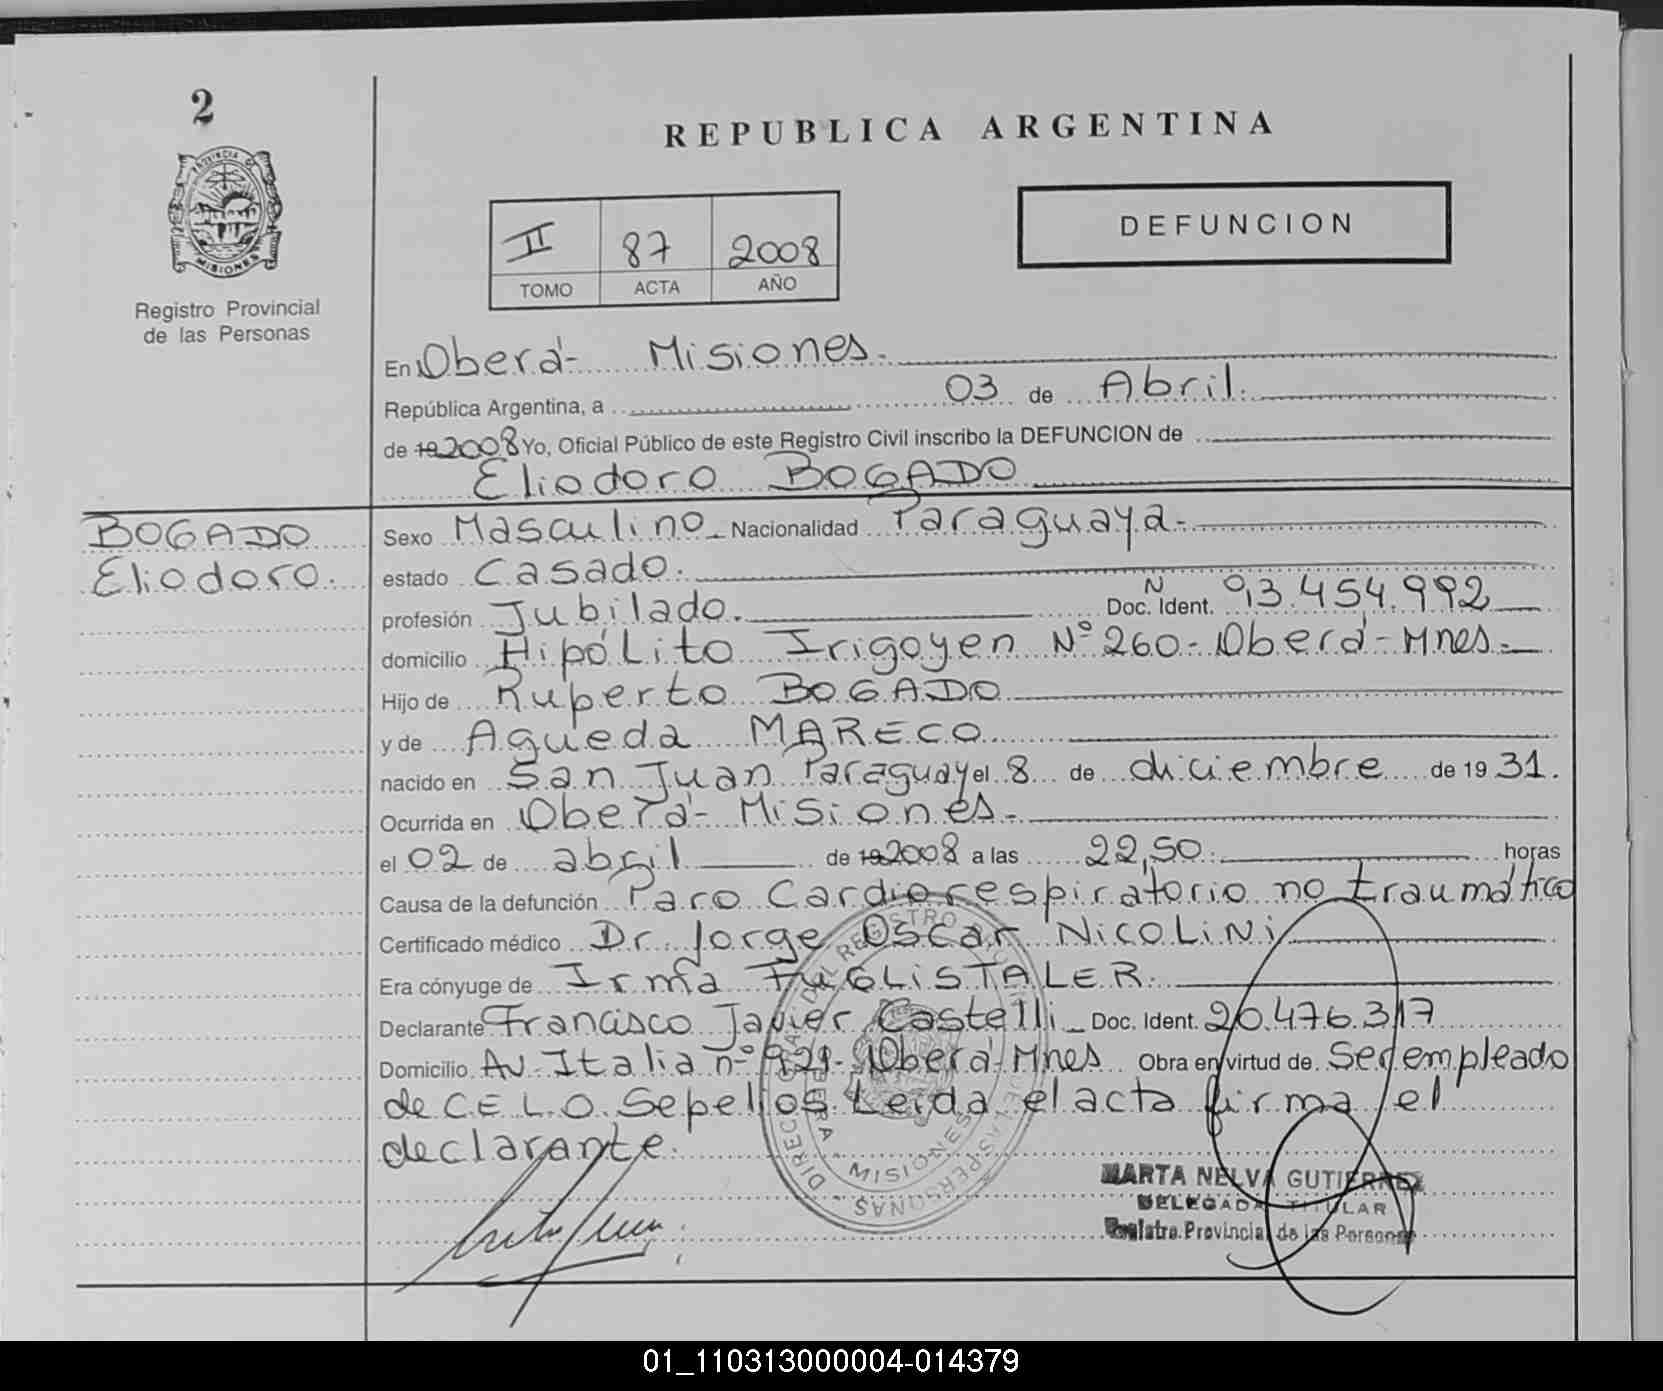 2
REPUBLICA ARGENTINA
PROVINCIA DE
MISIONES
Registro Provincial
de las Personas
II 87 2008
TOMO ACTA AÑO
DEFUNCION
En Oberá- Misiones.
República Argentina, a 03 de Abril.
de 19 2008 Yo, Oficial Público de este Registro Civil inscribo la DEFUNCION de
Eliodoro BOGADO
BOGADO
Eliodoro.
Sexo Masculino Nacionalidad Paraguaya.
estado Casado.
profesión Jubilado. Doc. N Ident. 93.454.992
domicilio Hipólito Irigoyen Nº 260- Oberá-Mnes.
Hijo de Ruperto BOGADO
y de Agueda MARECO
nacido en San Juan Paraguay el 8 de diciembre de 19 31.
Ocurrida en Oberá- Misiones.
el 02 de abril de 19 2008 a las 22,50. horas
Causa de la defunción Paro Cardiorespiratorio no traumático
Certificado médico Dr. Jorge Oscar NICOLINI
Era cónyuge de Irma FUGLISTALER.
Declarante Francisco Javier Castelli Doc. Ident. 20.476.317
Domicilio Av. Italia nº 921- Oberá-Mnes Obra en virtud de Ser empleado
de C.E.L.O. Sepelios. Leida el acta firma el
declarante.
MISIONES
MARTA NELVA GUTIERREZ
DELEGADA TITULAR
Registro Provincial de las Personas
01_110313000004-014379